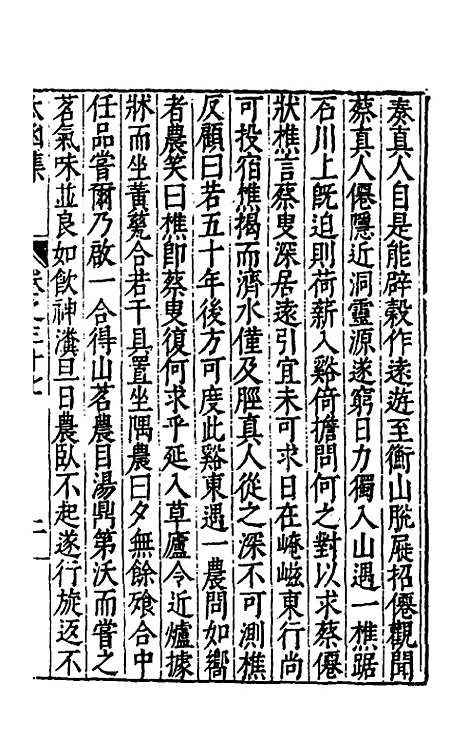 奏真人自是能辟穀作遠遊至衡山脫屣招僊觀聞
蔡真人僊隱近洞靈源遂窮日力獨入山遇一樵踞
石川上旣迫則荷薪入谿倚擔問何之對以求蔡僊
狀樵言蔡叟深居遠引宜未可求日在崦嵫東行尚
可投宿樵揭而濟水僅及脛真人從之深不可測樵
反顧曰若五十年後方可度此谿東遇一農問如嚮
者農笑曰樵卽蔡叟復何求乎延入草廬令近爐據
牀而坐黃甆合若干具置坐隅農曰夕無餘飧合中
任品嘗爾乃啟一合得山茗農目湯鼎第沃而嘗之
茗氣味並良如飲神瀵旦日農臥不起遂行旋返不
太函集
卷之三十七
二